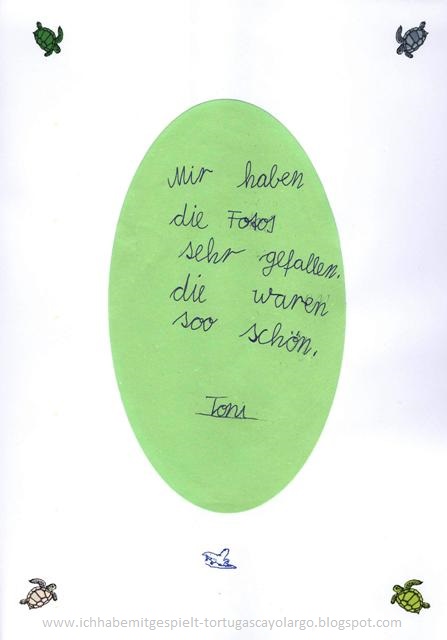 Mir haben
die Fotos
sehr gefallen.
die waren
soo schön.
Toni
www.ichhabemitgespielt-tortugascayolargo.blogspot.com